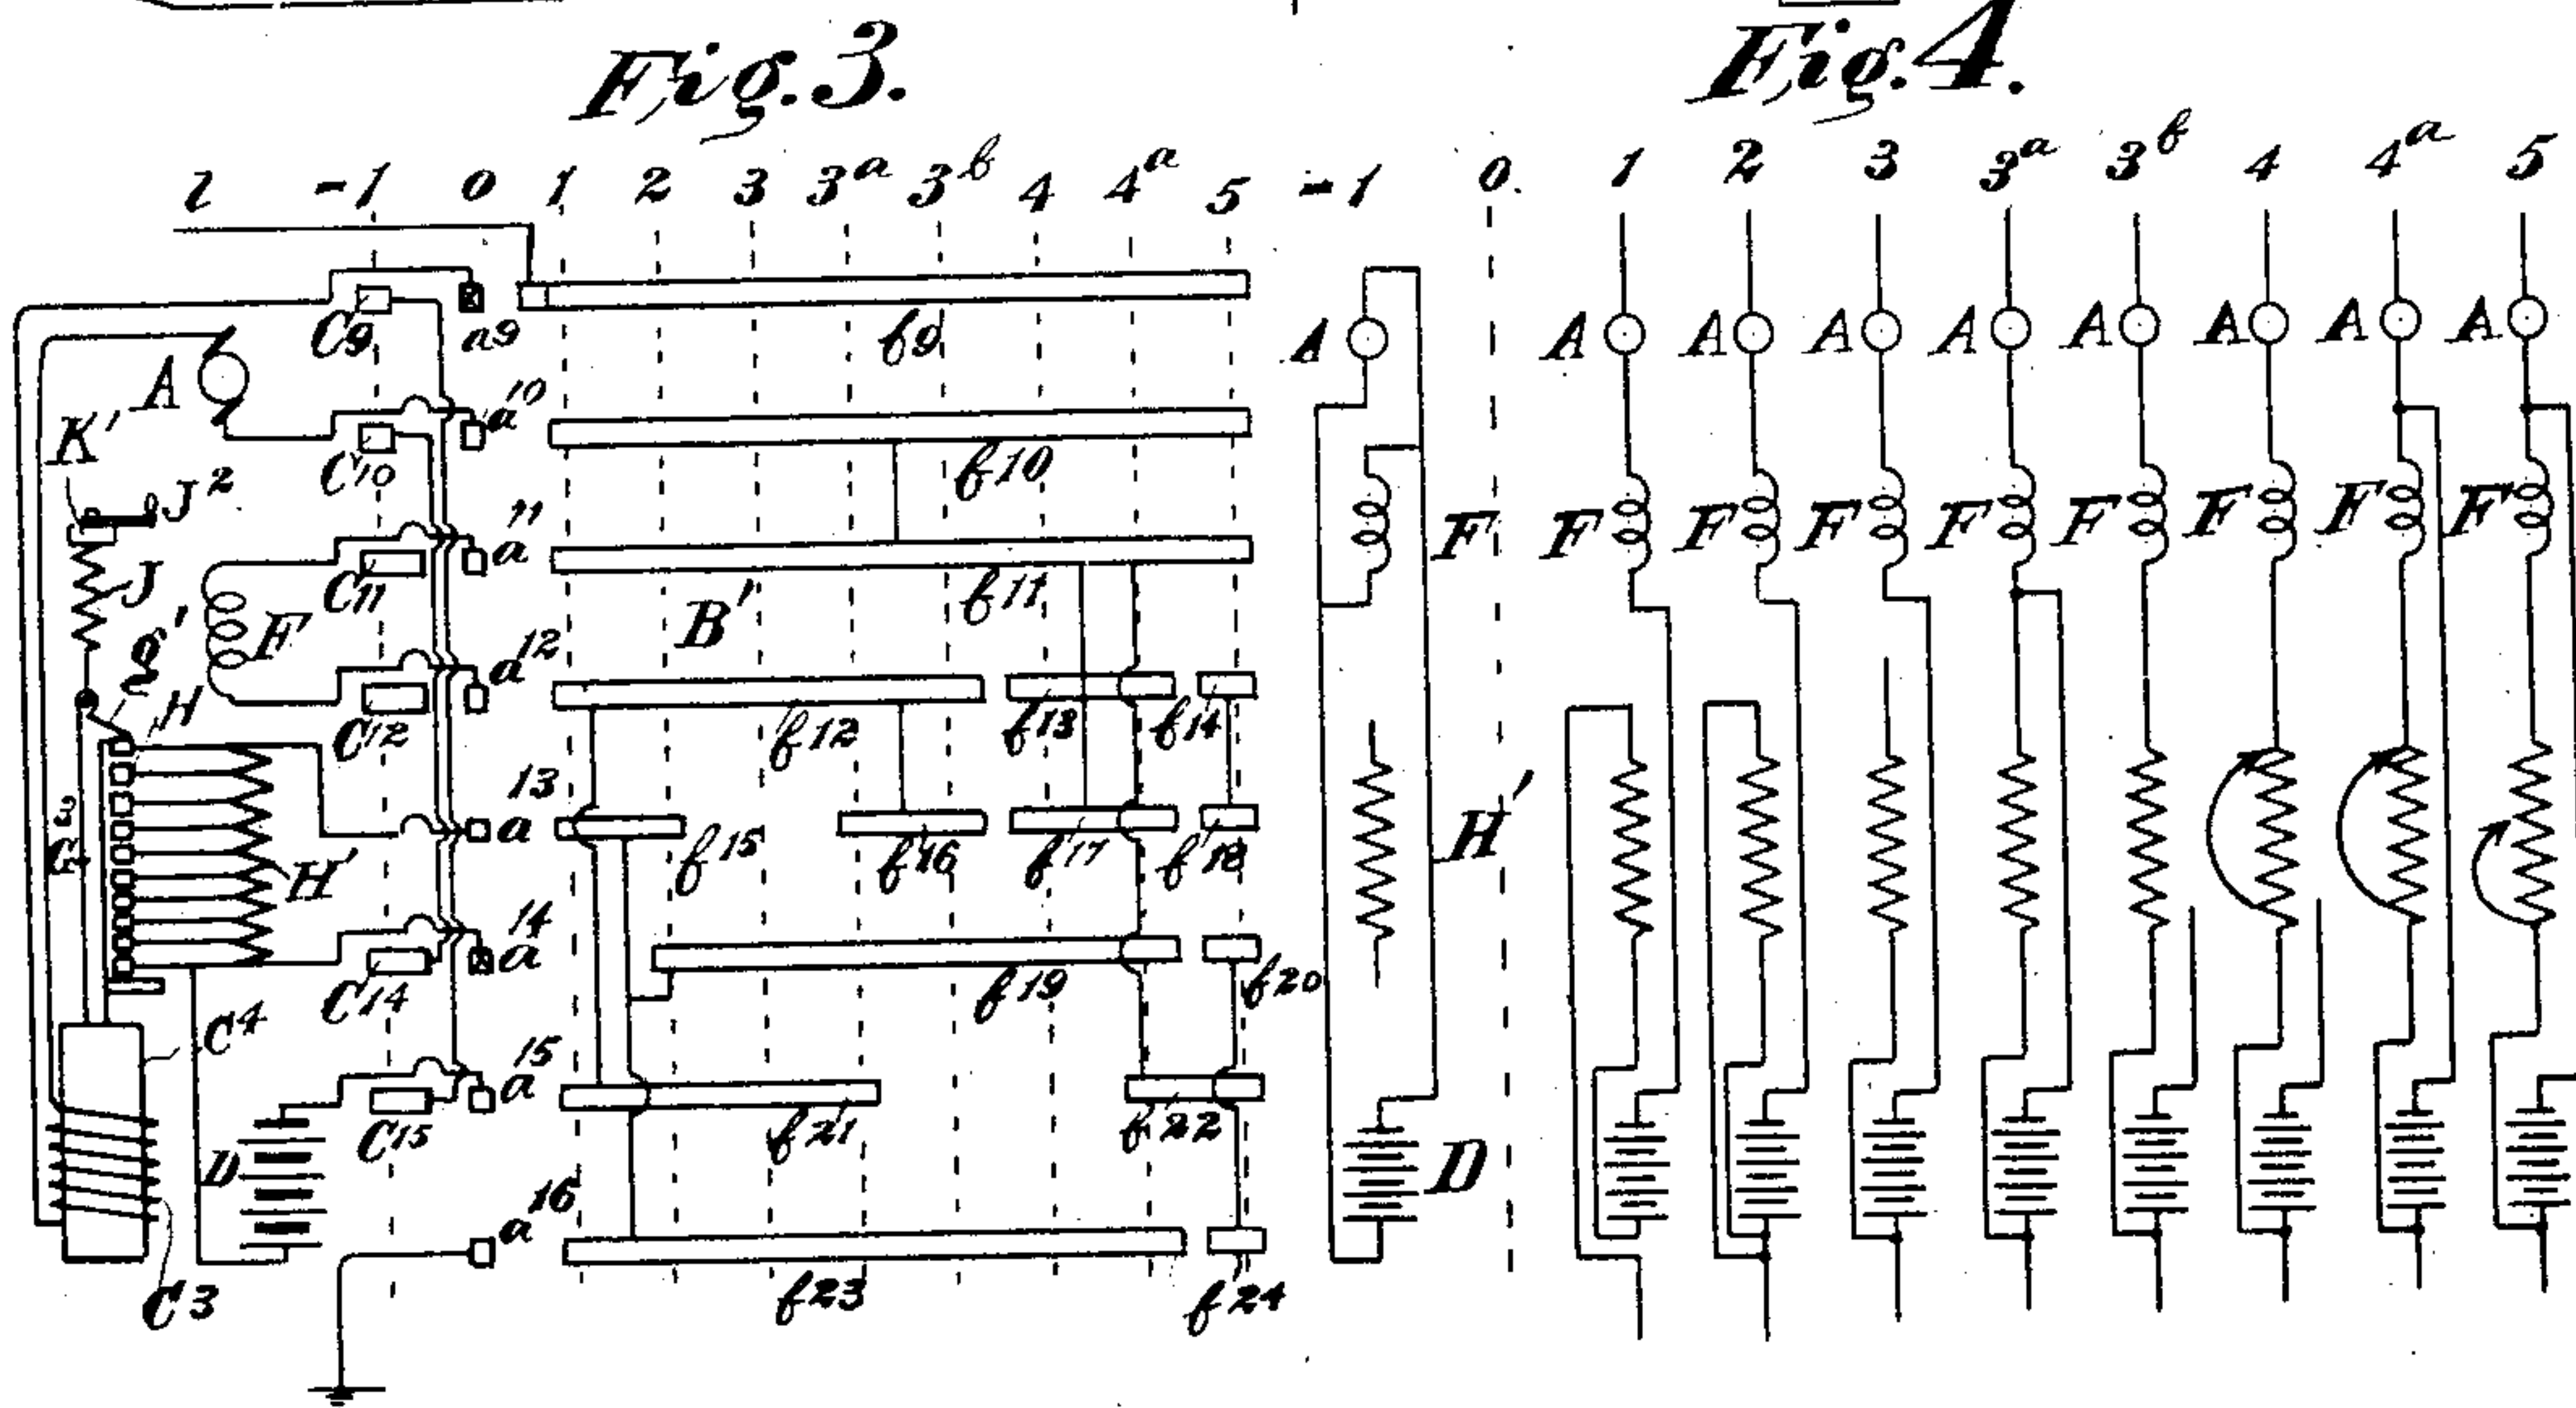 Fig. 3.
l -1 0 1 2 3 3a 3b 4 4a 5
C9 a9 f9
A
K' C10 a10 f10
J2
J C11 a11 f11
g' F B'
H C12 a12 f12 f13 f14
G3 H' a13 f15 f16 f17 f18
C14 a14 f19 f20
C4
D C15 a15 f21 f22
C3 a16 f23 f24
Fig. 4.
-1 0. 1 2 3 3a 3b 4 4a 5
A A A A A A A A A
F F F F F F F F F
H'
D